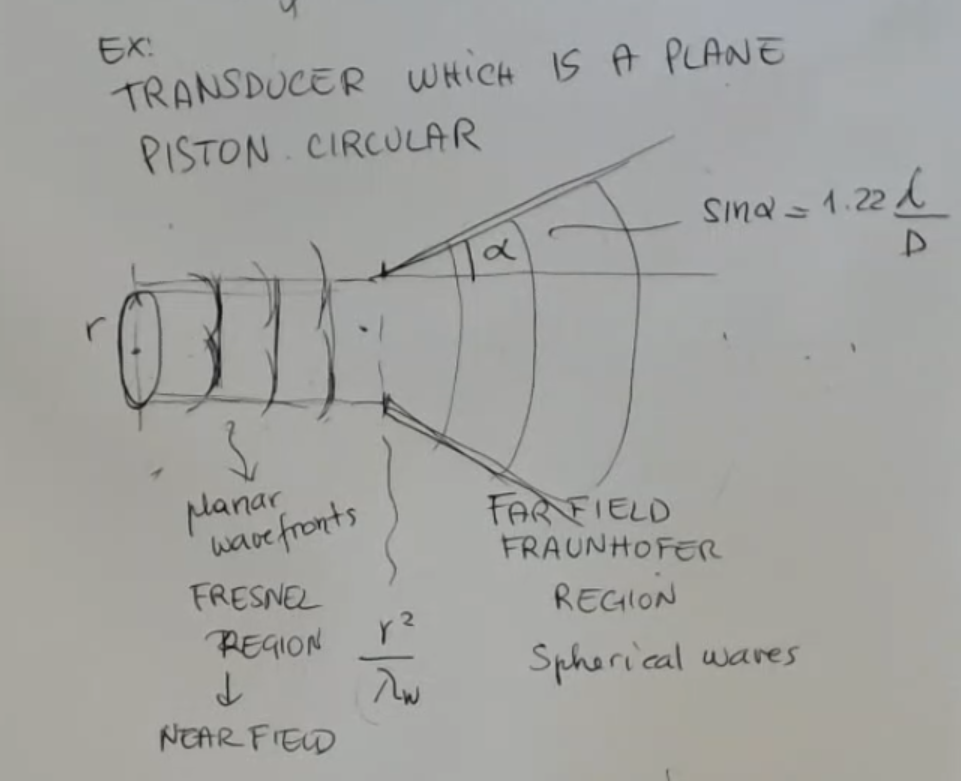 EX:
TRANSDUCER WHICH IS A PLANE
PISTON. CIRCULAR
sinα = 1.22 λ/D
α
r
planar
wavefronts
FRESNEL
REGION
↓
NEAR FIELD
r²/λw
FAR FIELD
FRAUNHOFER
REGION
Spherical waves